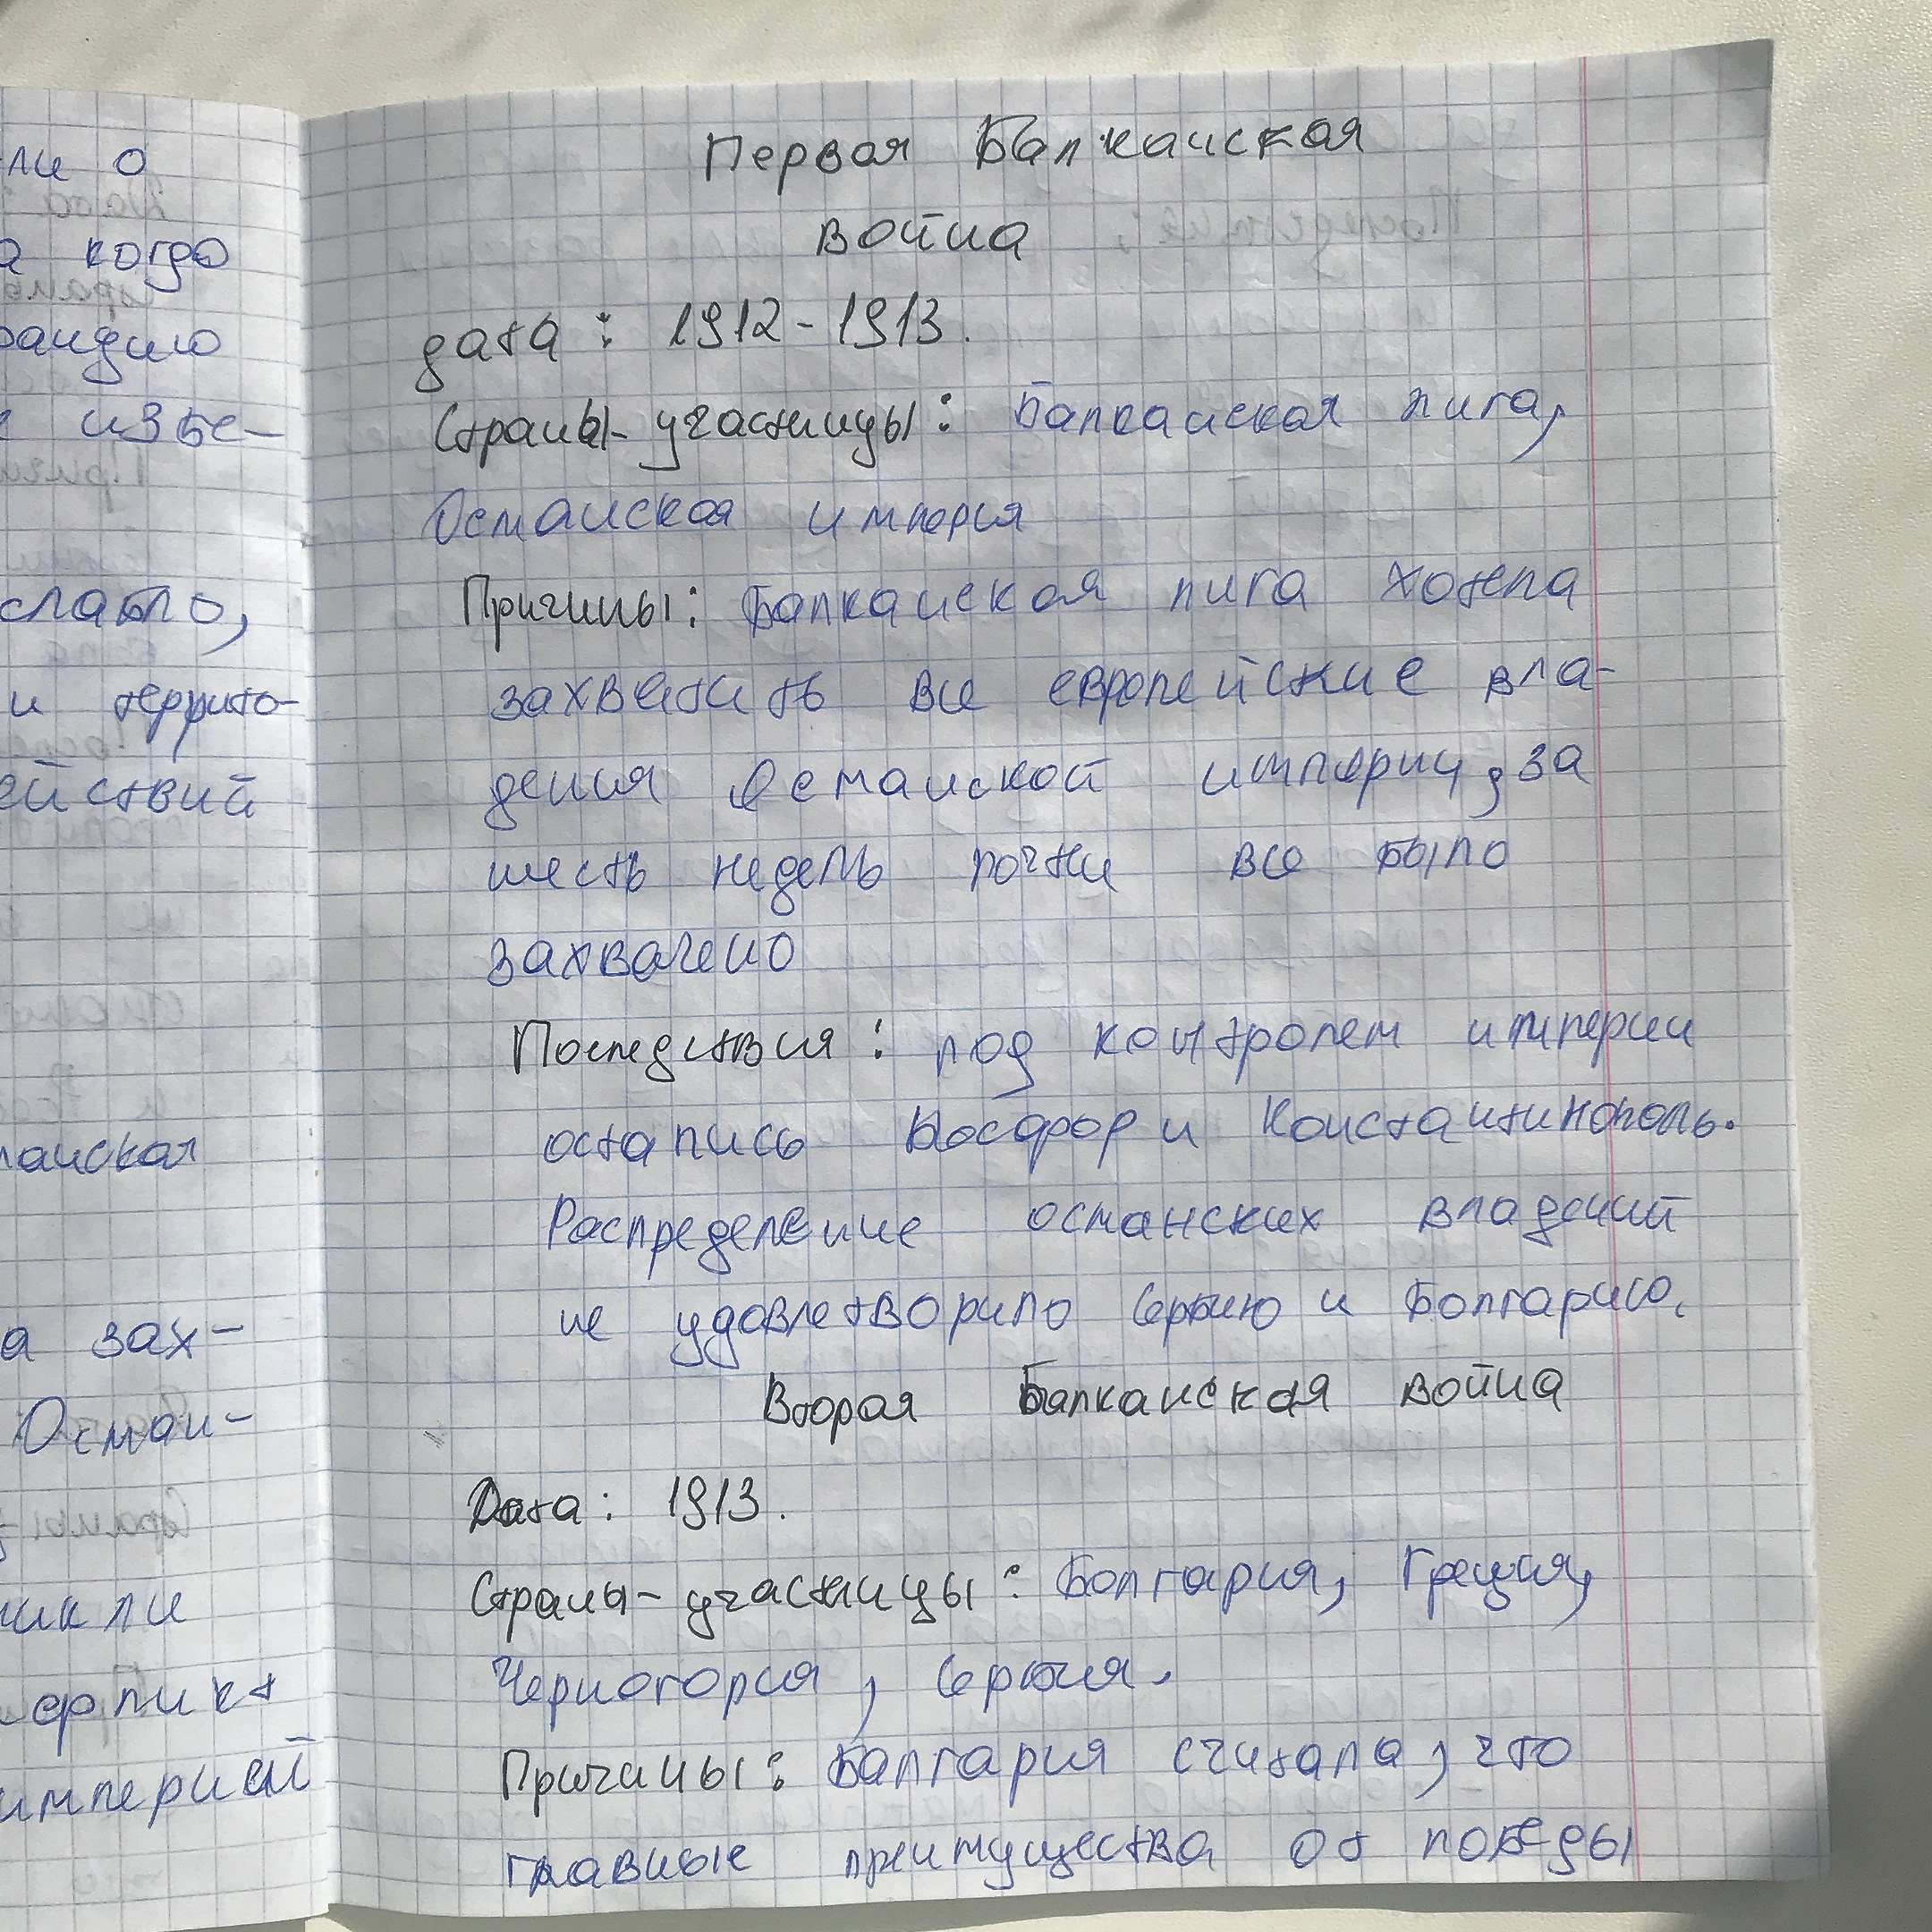 ли о
а когда
избе-
слабо,
и террито-
ействий
а зах-
Осман-
никли
империей
Первая Балканская
война
дата: 1912-1913.
Страны-участницы: Балканская лига,
Османская империя
Причины: Балканская лига хотела
захватить все европейские вла-
дения Османской империи, за
шесть недель почти все было
захвачено
Последствия: под контролем империи
остались Босфор и Константинополь.
Распределение османских владений
не удовлетворило Сербию и Болгарию.
Вторая Балканская война
Дата: 1913.
Страны-участницы: Болгария, Греция,
Черногория, Сербия.
Причины: Балгария считала, что
главные преимущества от победы